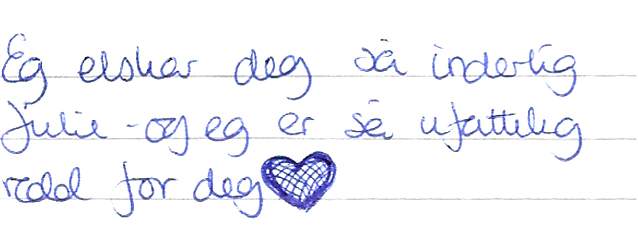 Eg elskar deg så inderlig
Julie - og eg er så ufattelig
redd for deg